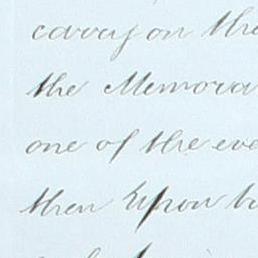 carry on the
the Memora
one of the eve
then Upon b